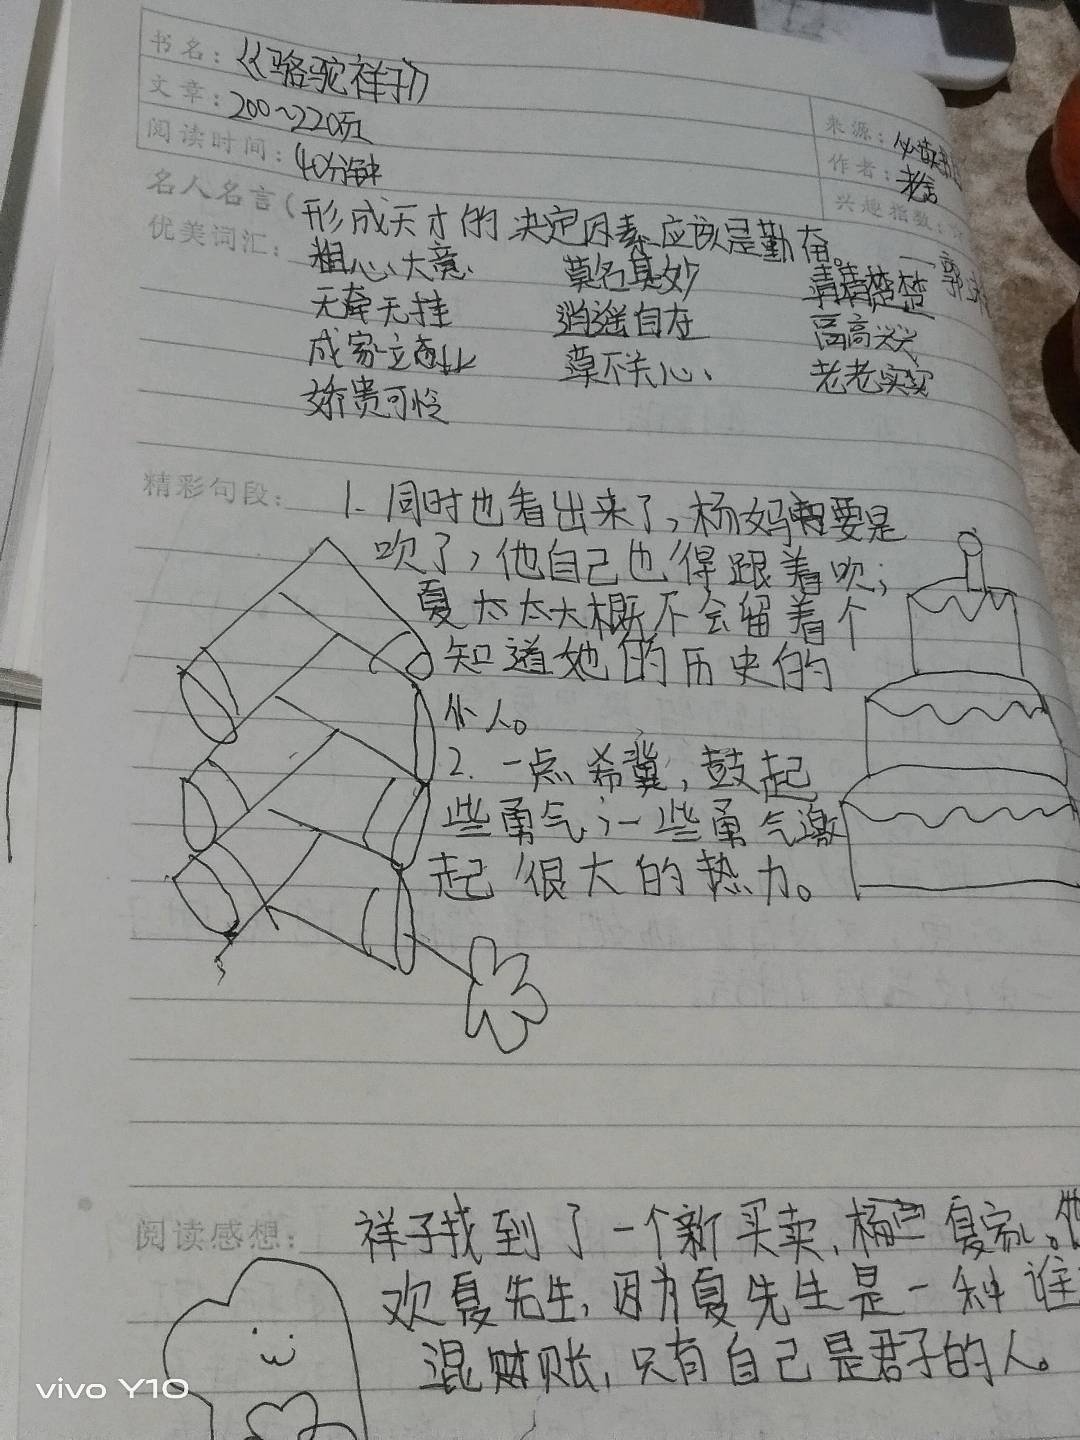 书名：《骆驼祥子》
文章：200～220页
来源：必读
阅读时间：40分钟
作者：老舍
兴趣指数：
名人名言（形成天才的决定因素应该是勤奋。——郭
优美词汇：粗心大意 莫名其妙 清清楚楚
无牵无挂 逍遥自在 高高兴兴
成家立业 莫不关心 老老实实
娇贵可怜
精彩句段：1. 同时也看出来了，杨妈要是
吹了，他自己也得跟着吹；
夏太太大概不会留着个
知道她的历史的
仆人。
2. 一点希冀，鼓起
些勇气；一些勇气激
起很大的热力。
阅读感想：祥子找到了一个新买卖，夏家。他
欢夏先生，因为夏先生是一种谁
混财账，只有自己是君子的人。
vivo Y10